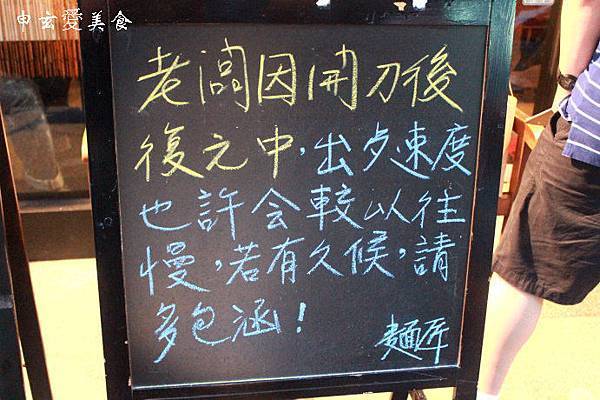 申玄愛美食
老闆因開刀後
復元中，出夕速度
也許会較以往
慢，若有久候，請
多包涵！
麵匠